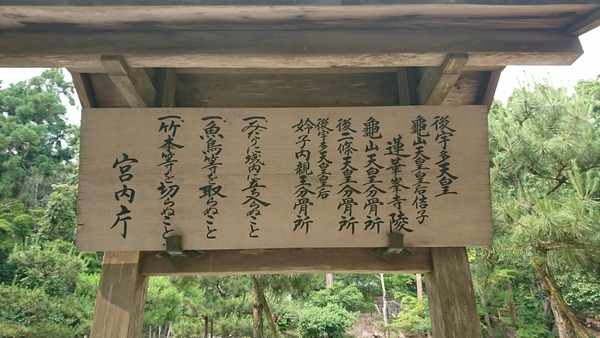 後宇多天皇
龜山天皇皇后佶子
蓮華峯寺陵
龜山天皇分骨所
後二條天皇分骨所
後宇多天皇皇后
姈子内親王分骨所
一、みだりに域内に立入らぬこと
一、魚鳥等を取らぬこと
一、竹木等を切らぬこと
宮内庁